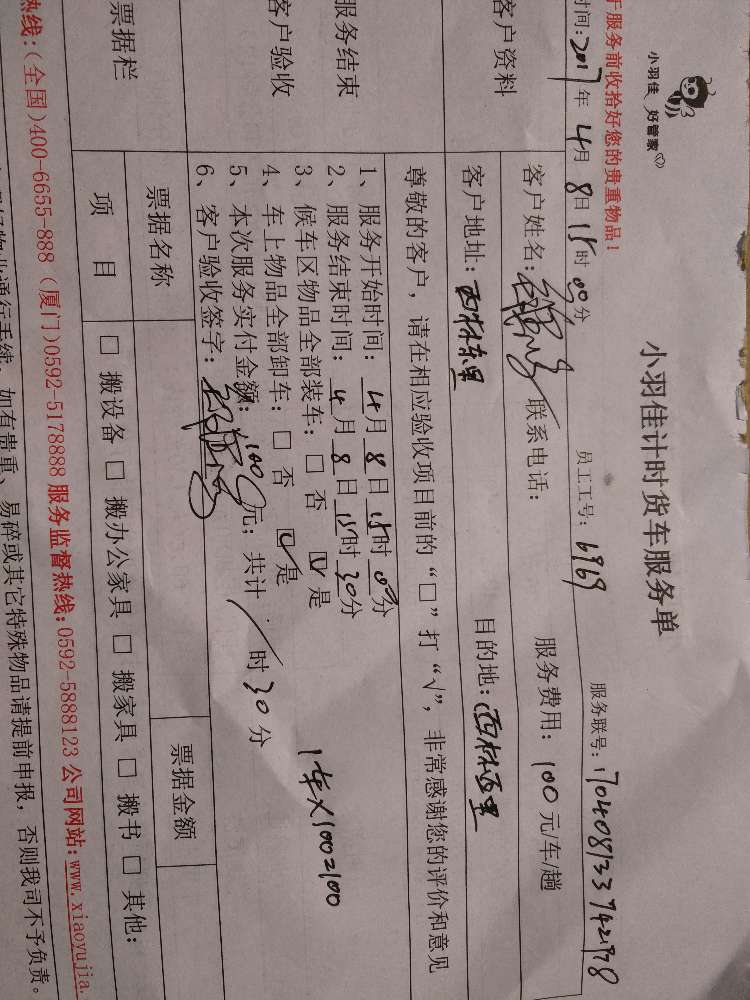 于服务前收拾好您的贵重物品！
小羽佳 好管家
小羽佳计时货车服务单
时间：2017年4月8日15时00分 员工工号：6969 服务联号：170408133742978
客户资料
客户姓名： 联系电话： 服务费用：100元/车/趟
客户地址：西林东里 目的地：西林西里
服务结束
客户验收
尊敬的客户，请在相应验收项目前的“□”打“√”，非常感谢您的评价和意见
1、服务开始时间：4月8日15时00分
2、服务结束时间：4月8日15时30分
3、候车区物品全部装车：□ 否 ☑ 是
4、车上物品全部卸车：□ 否 ☑ 是
5、本次服务实付金额：100元；共计 / 时30分
6、客户验收签字：
1车X100=100
票据栏
票据名称
票据金额
项 目
□ 搬设备 □ 搬办公家具 □ 搬家具 □ 搬书 □ 其他：
热线：(全国)400-6655-888 (厦门)0592-5178888 服务监督热线：0592-5888123 公司网站：www.xiaoyujia.
物业通行手续，如有贵重、易碎或其它特殊物品请提前申报，否则我司不予负责。